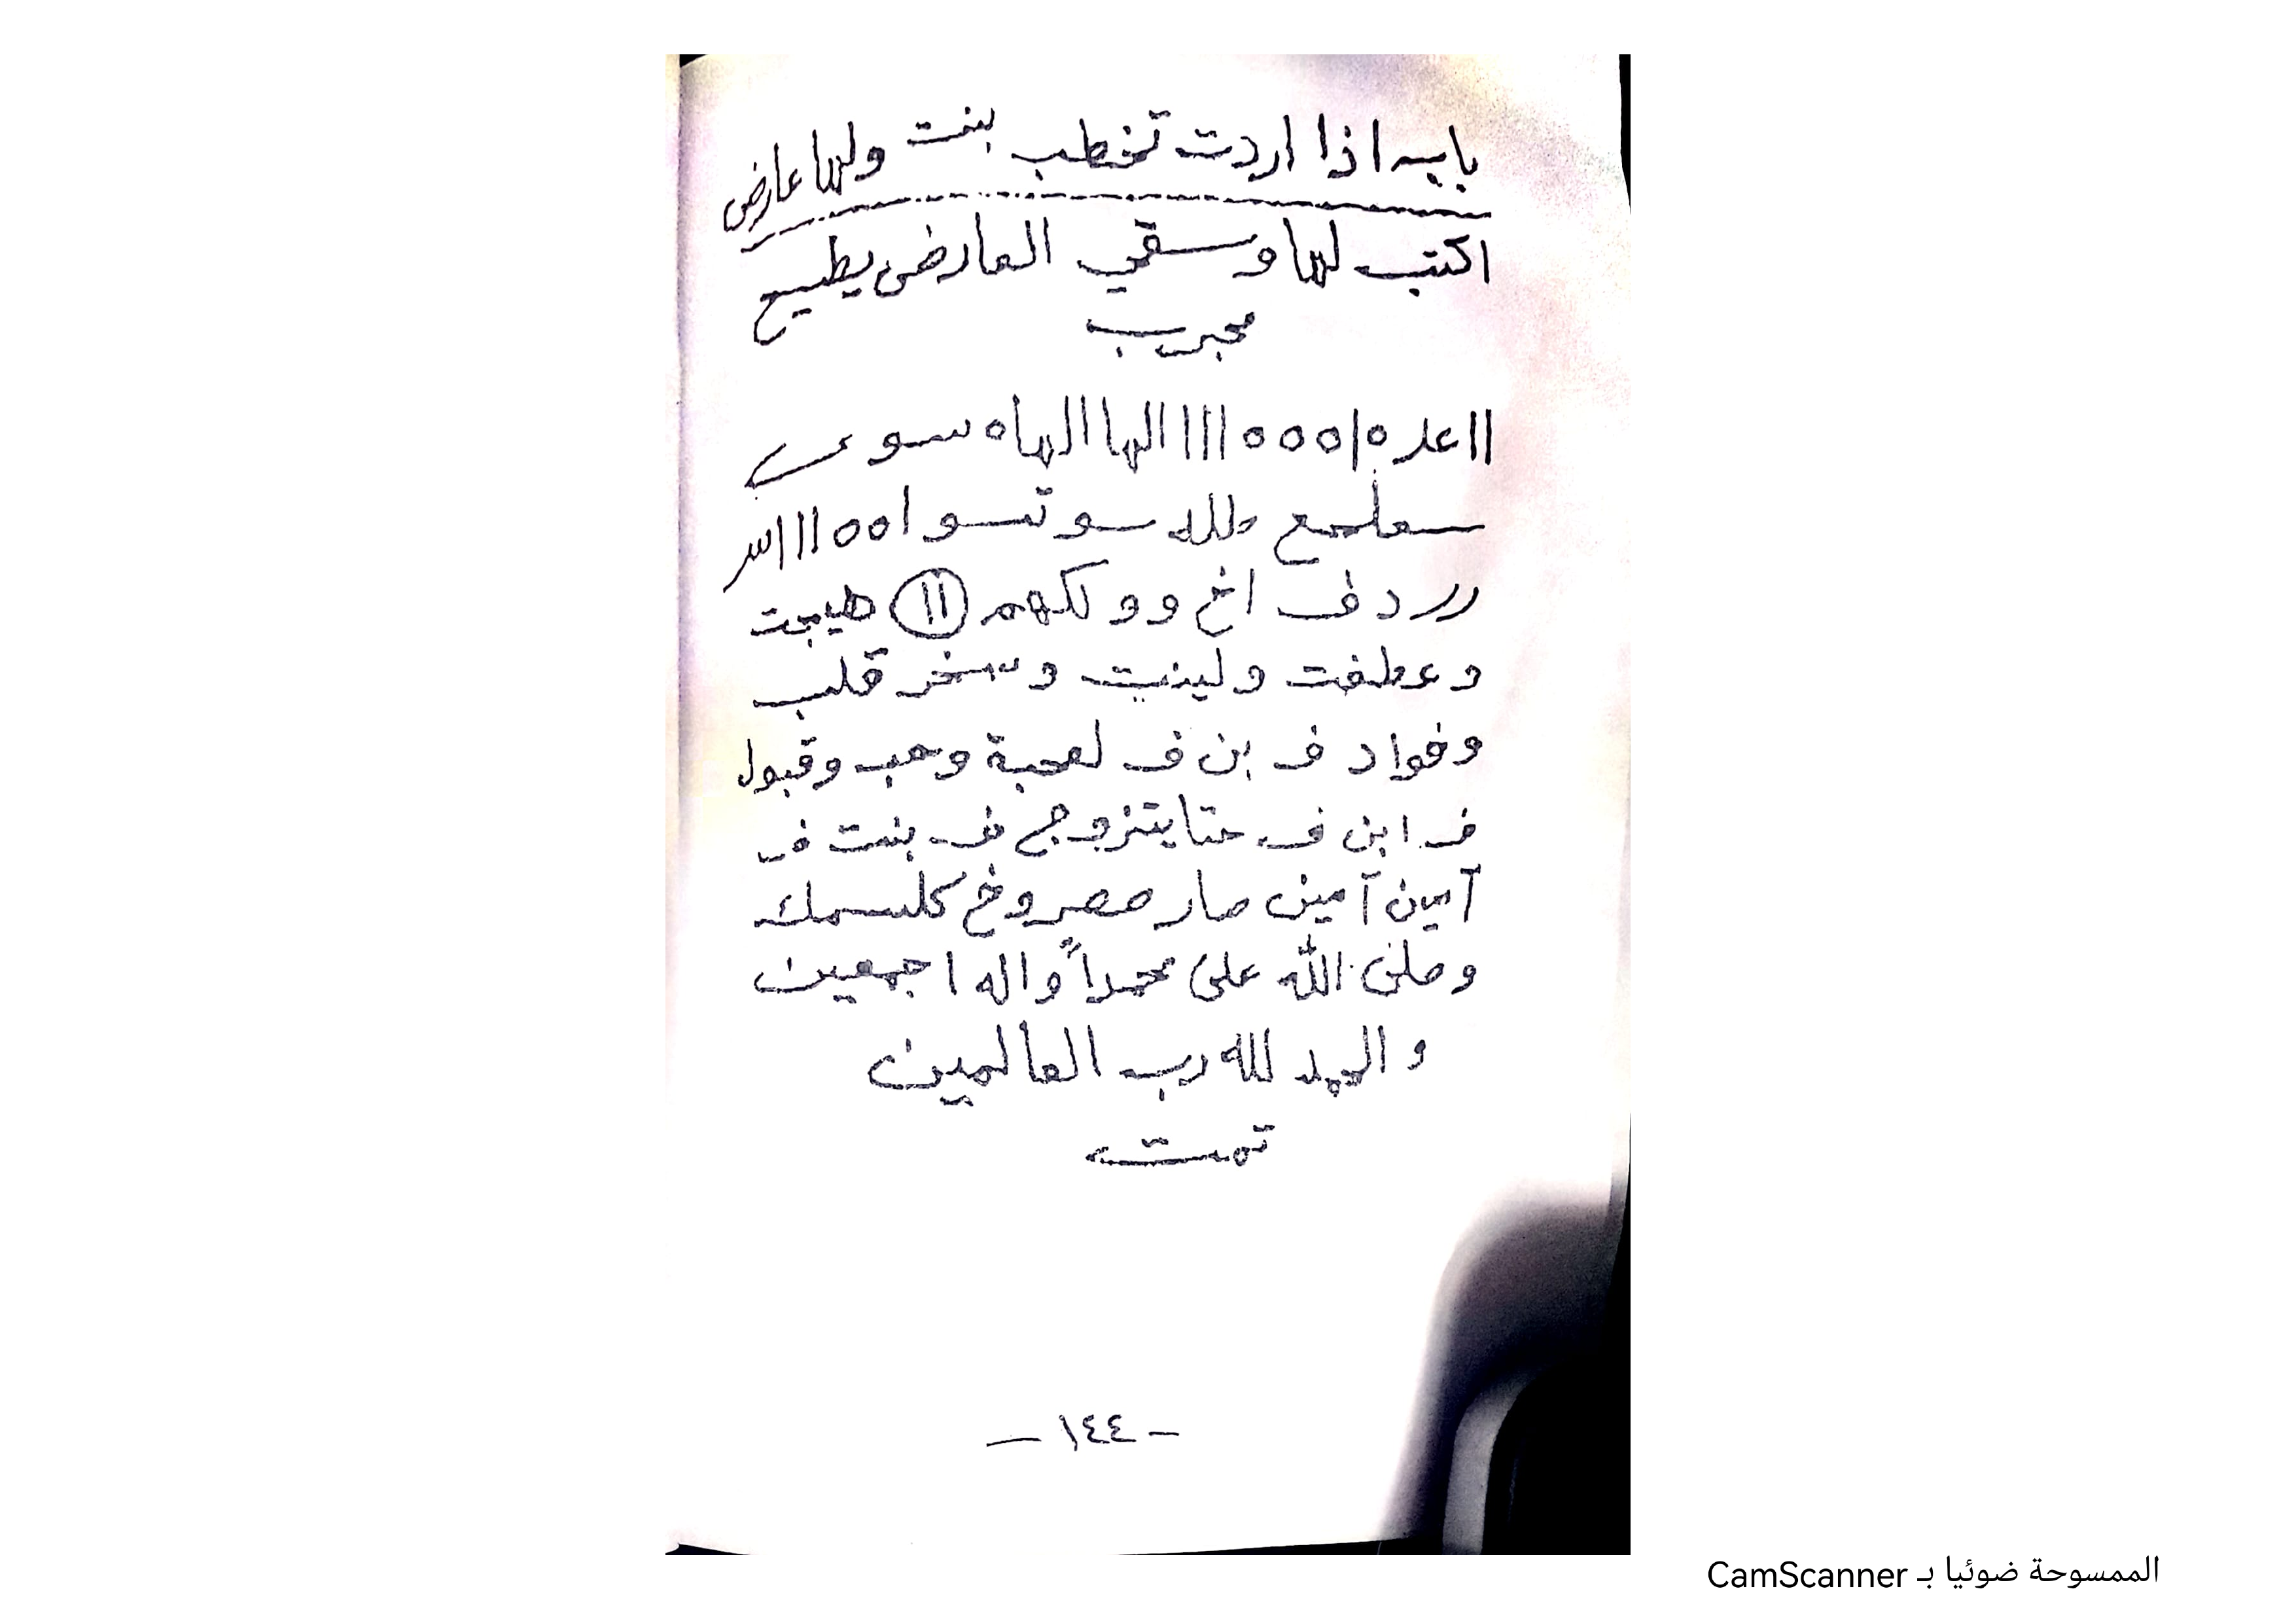 بابه اذا اردت تخطب بنت ولها عارض
اكتب لها وسقي العارض يطيح
مجرب
١١عد ه١ ٥٥٥ ااا الها الهاه سو
سعلمع طلله سو تسو ا٥٥ااا
رر د ف اخ وو لكهم ١١ هيجت
وعطفت ولينت وسخر قلب
وفواد ف بن ف لمحبة وحب وقبول
ف ابن ف حتا يتزوج ف بنت ف
آمين آمين صار مصروخ كلسمك
وصلى الله على محمداً واله اجمعين
والحمد لله رب العالمين
تمت
- ١٤٤ -
الممسوحة ضوئيا بـ CamScanner